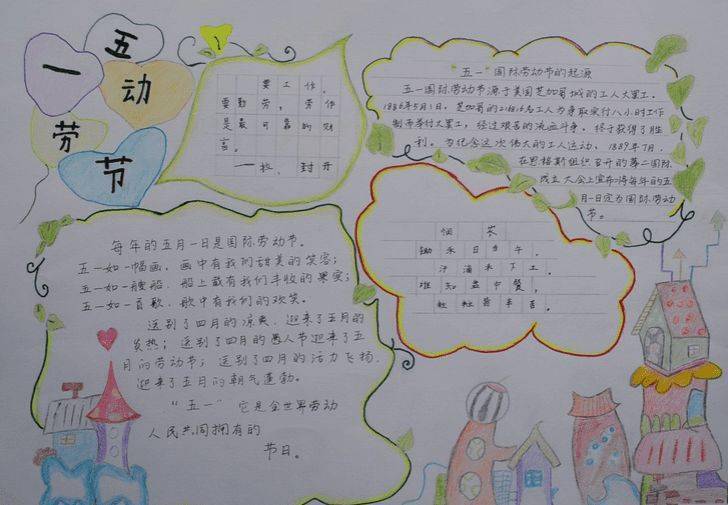 五
一
动
劳
节
要工作,
要勤劳,劳作
是最可靠的财
富。
——拉.封丹
"五一"国际劳动节的起源
五一国际劳动节源于美国芝加哥城的工人大罢工。
1886年5月1日,芝加哥的21.6万名工人为争取实行八小时工作
制而举行大罢工,经过艰苦的流血斗争,终于获得了胜
利。为纪念这次伟大的工人运动,1889年7月,
在恩格斯组织召开的第二国际
成立大会上宣布将每年的五
月一日定为国际劳动
节。
悯 农
锄禾日当午,
汗滴禾下土。
谁知盘中餐,
粒粒皆辛苦。
每年的五月一日是国际劳动节。
五一如一幅画,画中有我们甜美的笑容;
五一如一艘船,船上载有我们丰收的果实;
五一如一首歌,歌中有我们的欢笑。
送别了四月的凉爽,迎来了五月的
炎热;送别了四月的愚人节迎来了五
月的劳动节;送别了四月的活力飞扬,
迎来了五月的朝气蓬勃。
"五一"它是全世界劳动
人民共同拥有的
节日。